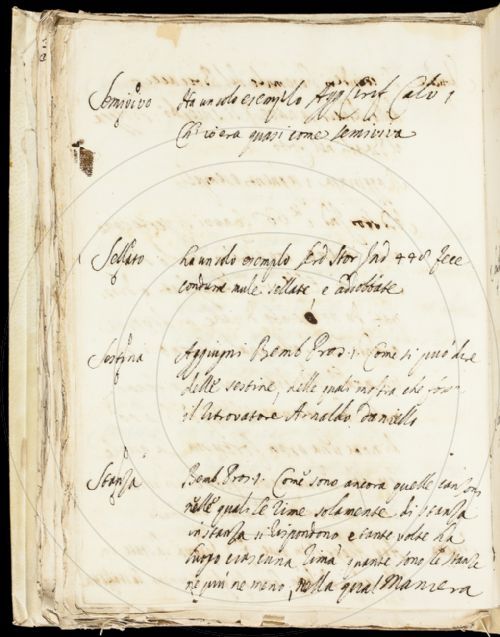 Semivivo Ha un solo esempio Agg Cirif Calv 1
Ch' io era quasi come semiviva
Sellato ha un solo esempio Serd Stor Ind 448 fece
condurre mule sellate e addobbate
Sestina Aggiugni Bemb Pros 1. Come si può dire
delle sestine, nelle quali mostra che fosse
il ritrovatore Arnaldo Daniello
Stanza Bemb. Pros 1. Come sono ancora quelle canzoni
nelle quali le rime solamente di stanza
in stanza si rispondono e tante volte ha
luogo ciascuna rima quante sono le stanze
ne più ne meno, nella qual Maniera